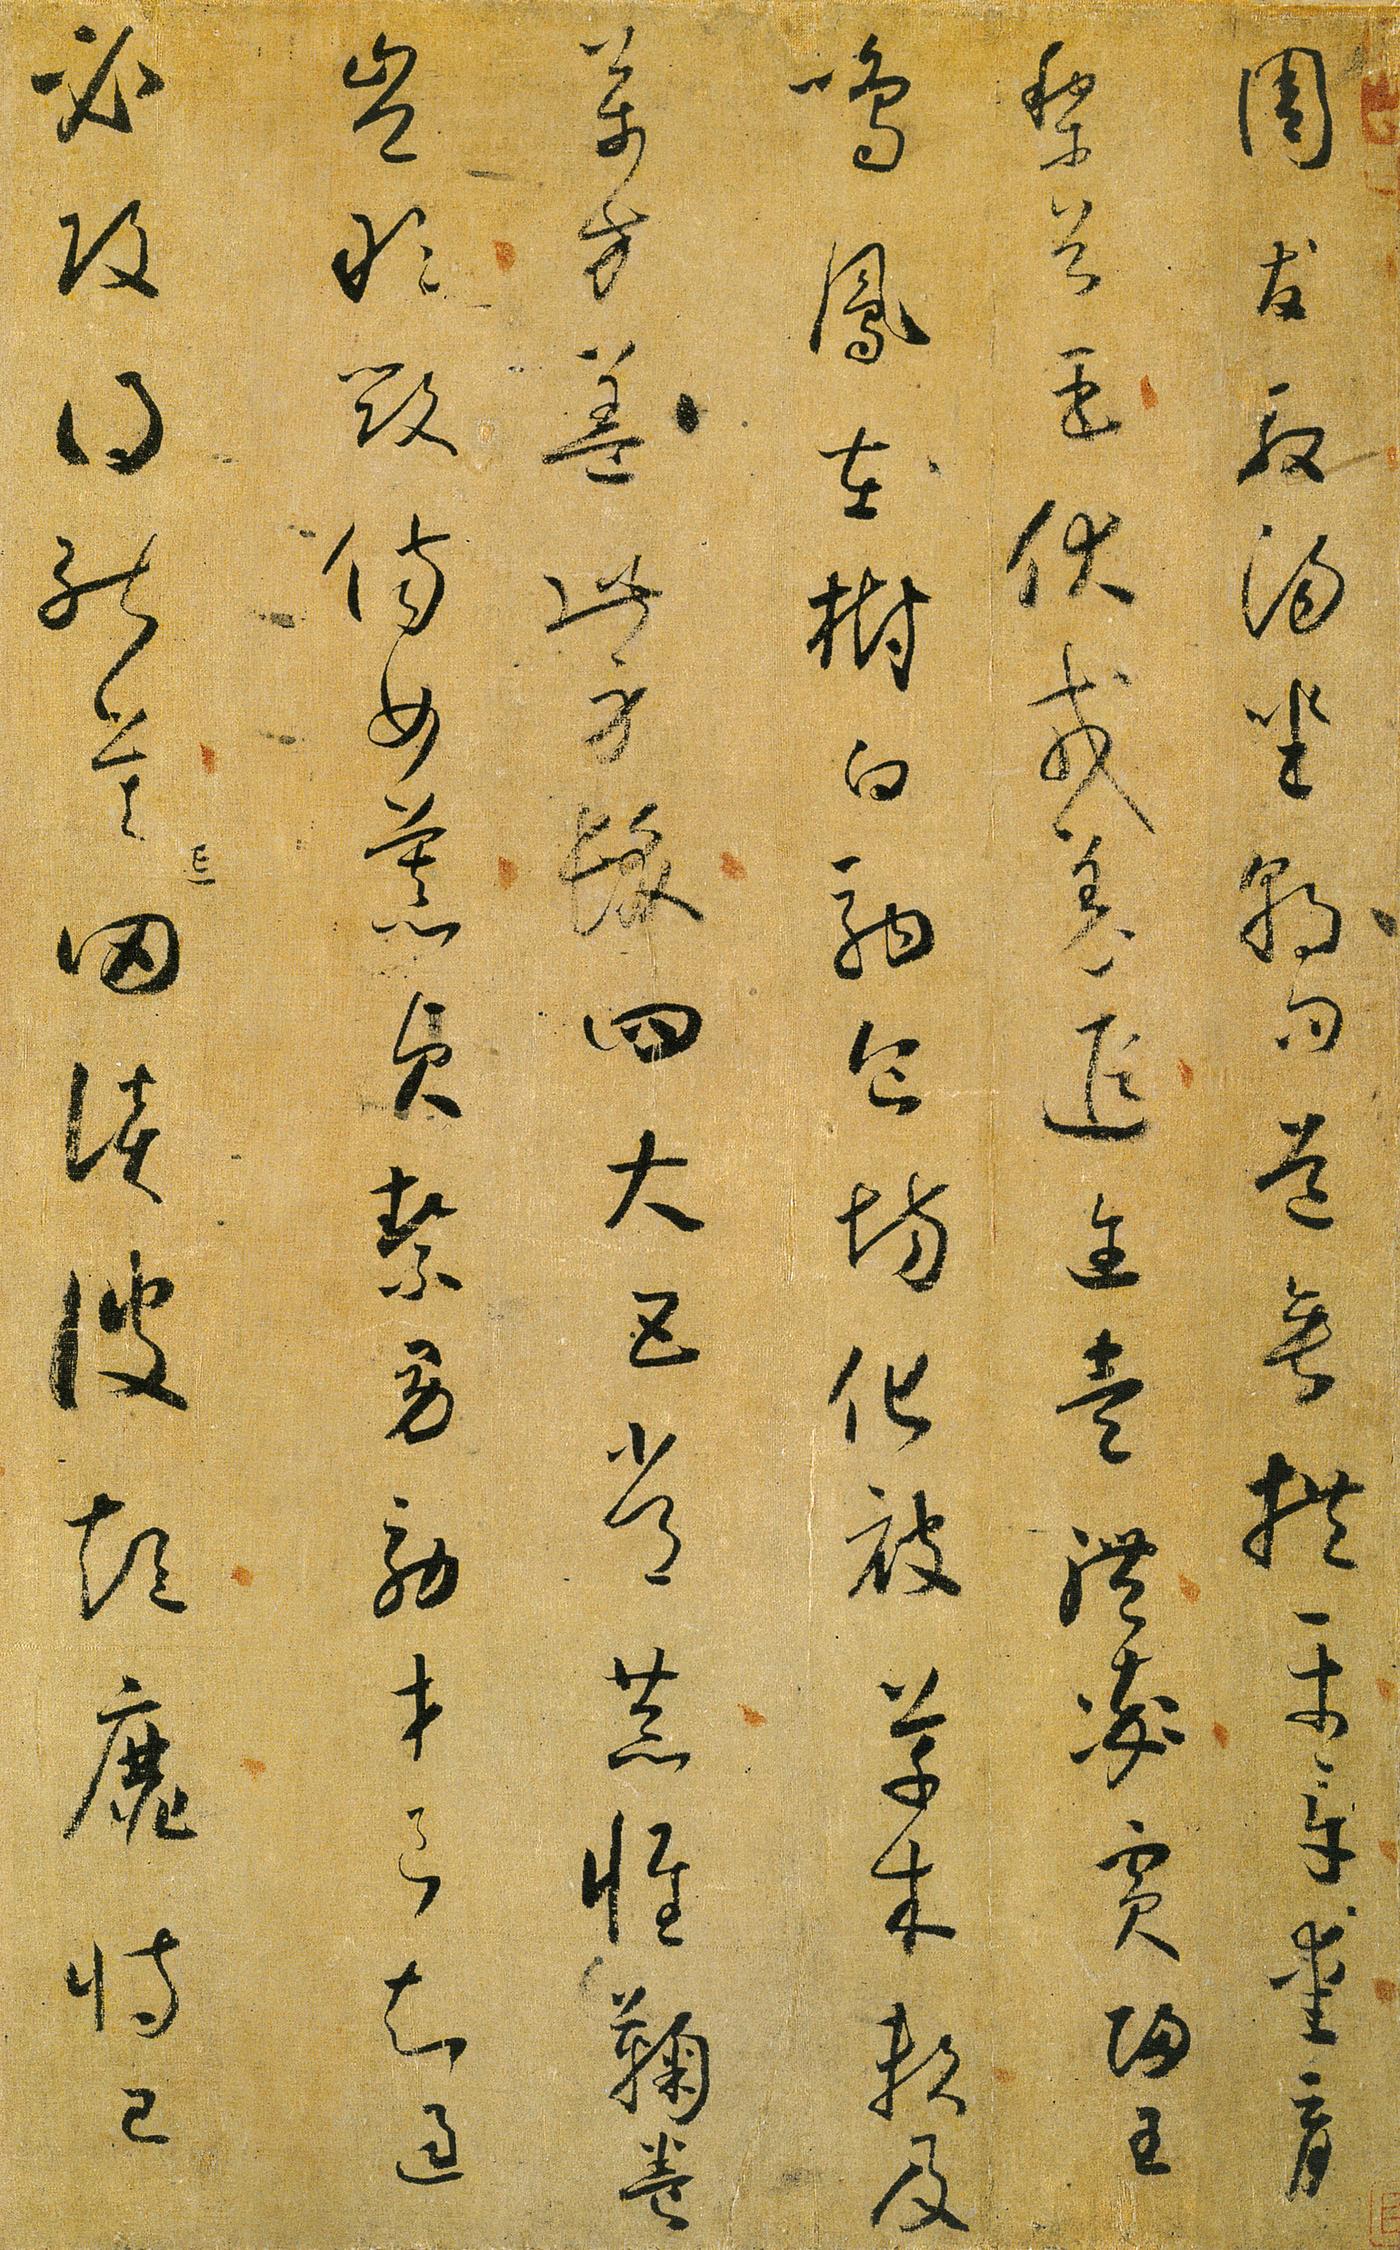 周發殷湯坐朝問道垂拱平章愛育
黎首臣伏戎羌遐邇壹體率賓歸王
鳴鳳在樹白駒食場化被草木賴及
萬方蓋此身髮四大五常恭惟鞠養
豈敢毀傷女慕貞絜男效才良知過
必改得能莫忘罔談彼短靡恃己